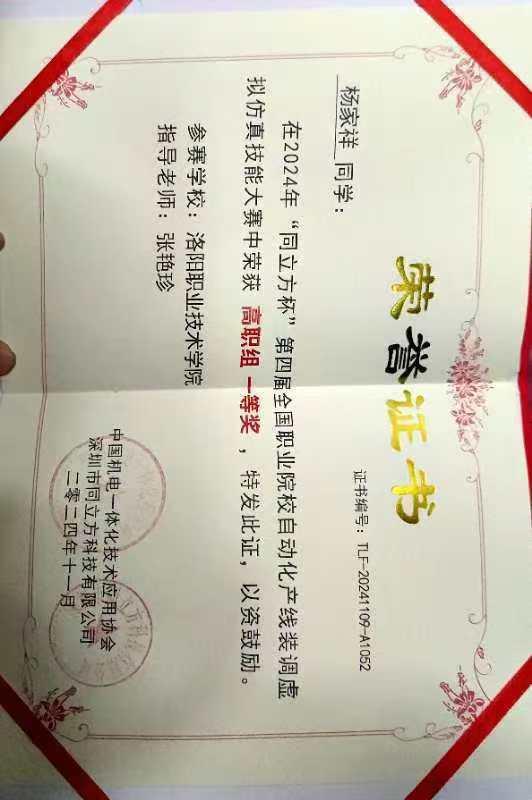 荣誉证书
证书编号：TLF-20241109-A1052
杨家祥 同学：
在2024年“同立方杯”第四届全国职业院校自动化产线装调虚
拟仿真技能大赛中荣获 高职组 一等奖，特发此证，以资鼓励。
参赛学校：洛阳职业技术学院
指导老师：张艳珍
中国机电一体化技术应用协会
深圳市同立方科技有限公司
二零二四年十一月